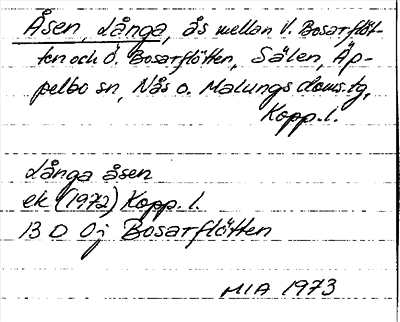 Åsen, Långa, ås mellan V. Bosarflöt-
ten och Ö. Bosarflötten, Sälen, Äp-
pelbo sn, Nås o. Malungs doms.tg,
Kopp.l.
Långa åsen
ek (1972) Kopp.l.
13 D 0j Bosarflötten
MIA 1973